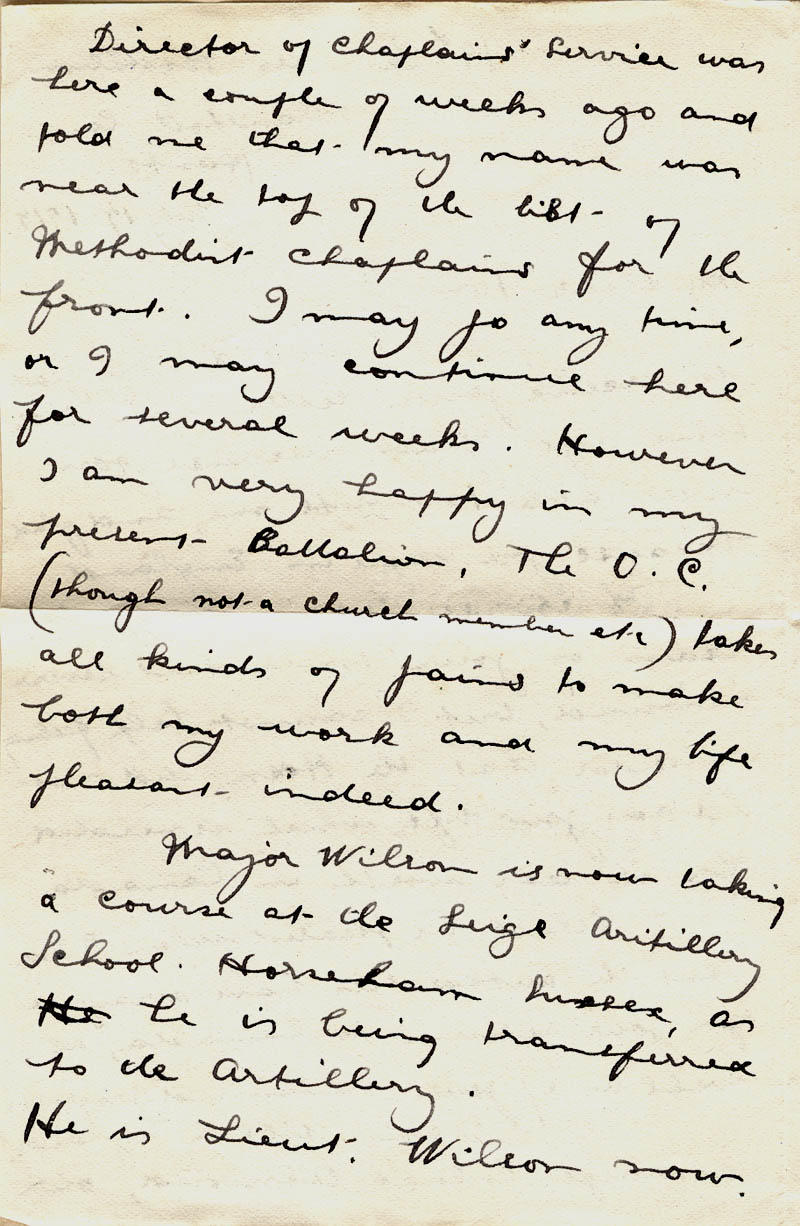 Director of Chaplains' Service was
here a couple of weeks ago and
told me that my name was
near the top of the list of
Methodist Chaplains for the
front. I may go any time,
or I may continue here
for several weeks. However
I am very happy in my
present Battalion, The O.C.
(though not a church member etc) takes
all kinds of pains to make
both my work and my life
pleasant indeed.
Major Wilson is now taking
a course at the Seige Artillery
School. Horseham Sussex, as
He he is being transferred
to the Artillery.
He is Lieut. Wilson now.